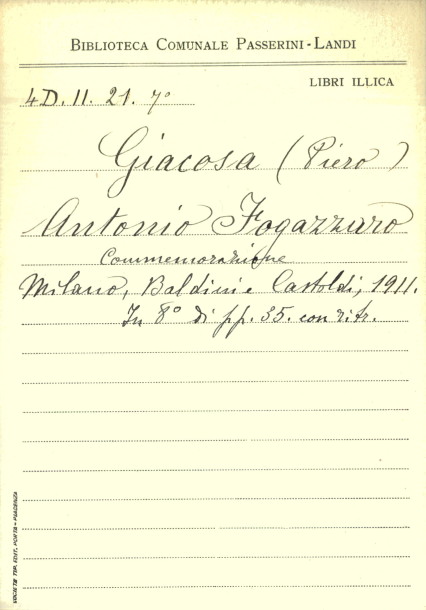 BIBLIOTECA COMUNALE PASSERINI-LANDI
LIBRI ILLICA
4D. II. 21. 7°
Giacosa (Piero)
Antonio Fogazzaro
Commemorazione
Milano, Baldini e Castoldi, 1911.
In 8° di pp. 35. con ritr.
SOCIETÀ TIP. EDIT. PORTA - PIACENZA